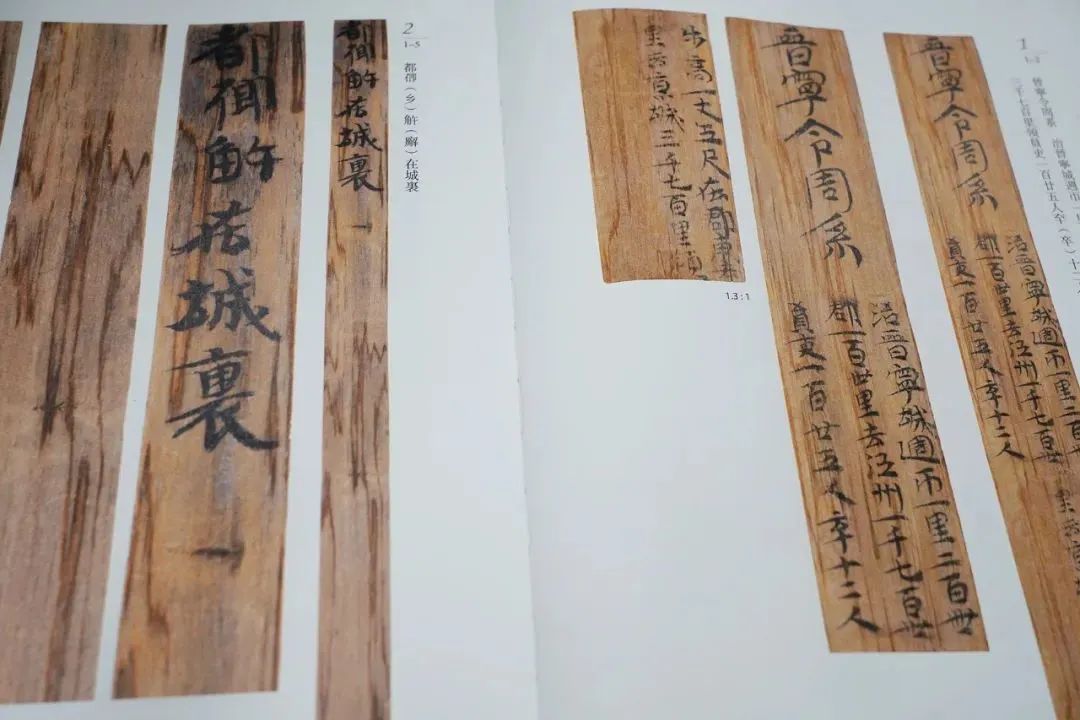 1
1-2
晉寧令周系 治晉寧城週帀一里
三千七百里領員吏一百廿五人卒（卒）十二
晉寧令周系
治晉寧城週帀一里二百
郡一百卌里去江州一千七百卌
員吏一百廿五人卒十二人
晉寧令周系
治晉寧城週帀一里二百卌
郡一百卌里去江州一千七百卌
員吏一百廿五人卒十二人
步高一丈五尺在郡東去
里去京城三千七百里領
1.3 : 1
2
1-5
都鄉（乡）觧（廨）在城裏
都鄉觧在城裏 一
都鄉觧在城裏 一